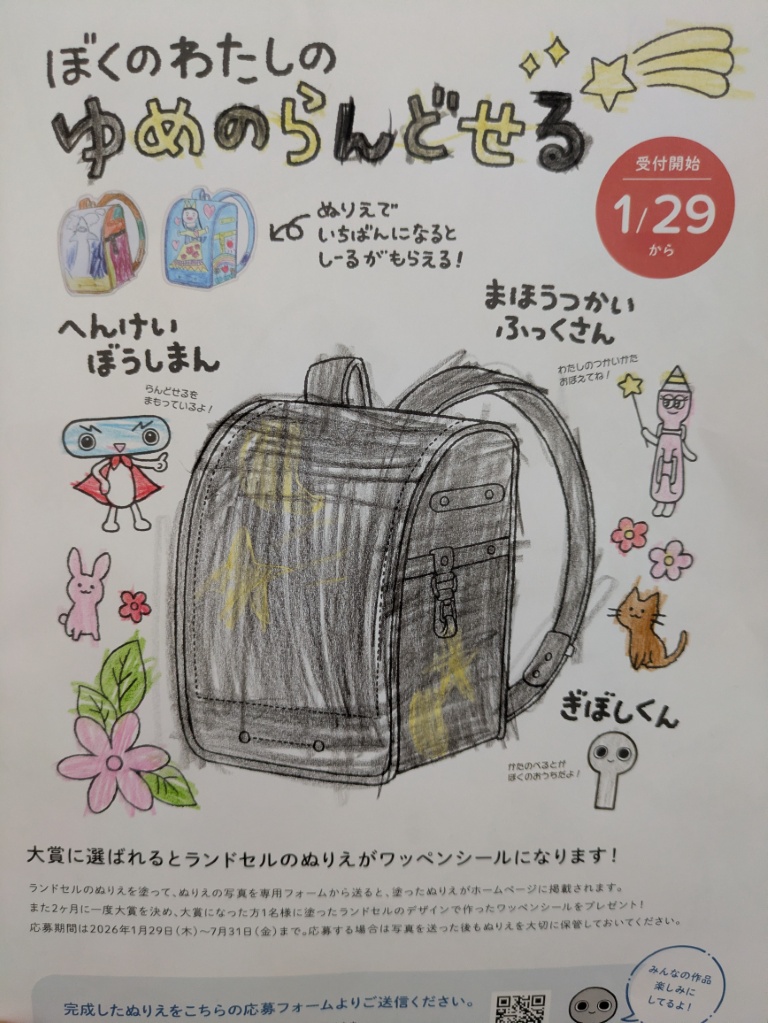 ぼくのわたしの
ゆめのらんどせる
受付開始
1/29
から
ぬりえで
いちばんになると
しーるがもらえる！
へんけい
ぼうしまん
らんどせるを
まもっているよ！
まほうつかい
ふっくさん
わたしのつかいかた
おぼえてね！
ぎぼしくん
かたのべるとが
ぼくのおうちだよ！
大賞に選ばれるとランドセルのぬりえがワッペンシールになります！
ランドセルのぬりえを塗って、ぬりえの写真を専用フォームから送ると、塗ったぬりえがホームページに掲載されます。
また2ヶ月に一度大賞を決め、大賞になった方1名様に塗ったランドセルのデザインで作ったワッペンシールをプレゼント！
応募期間は2026年1月29日(木)～7月31日(金)まで。応募する場合は写真を送った後もぬりえを大切に保管しておいてください。
完成したぬりえをこちらの応募フォームよりご送信ください。
みんなの作品
楽しみに
してるよ！